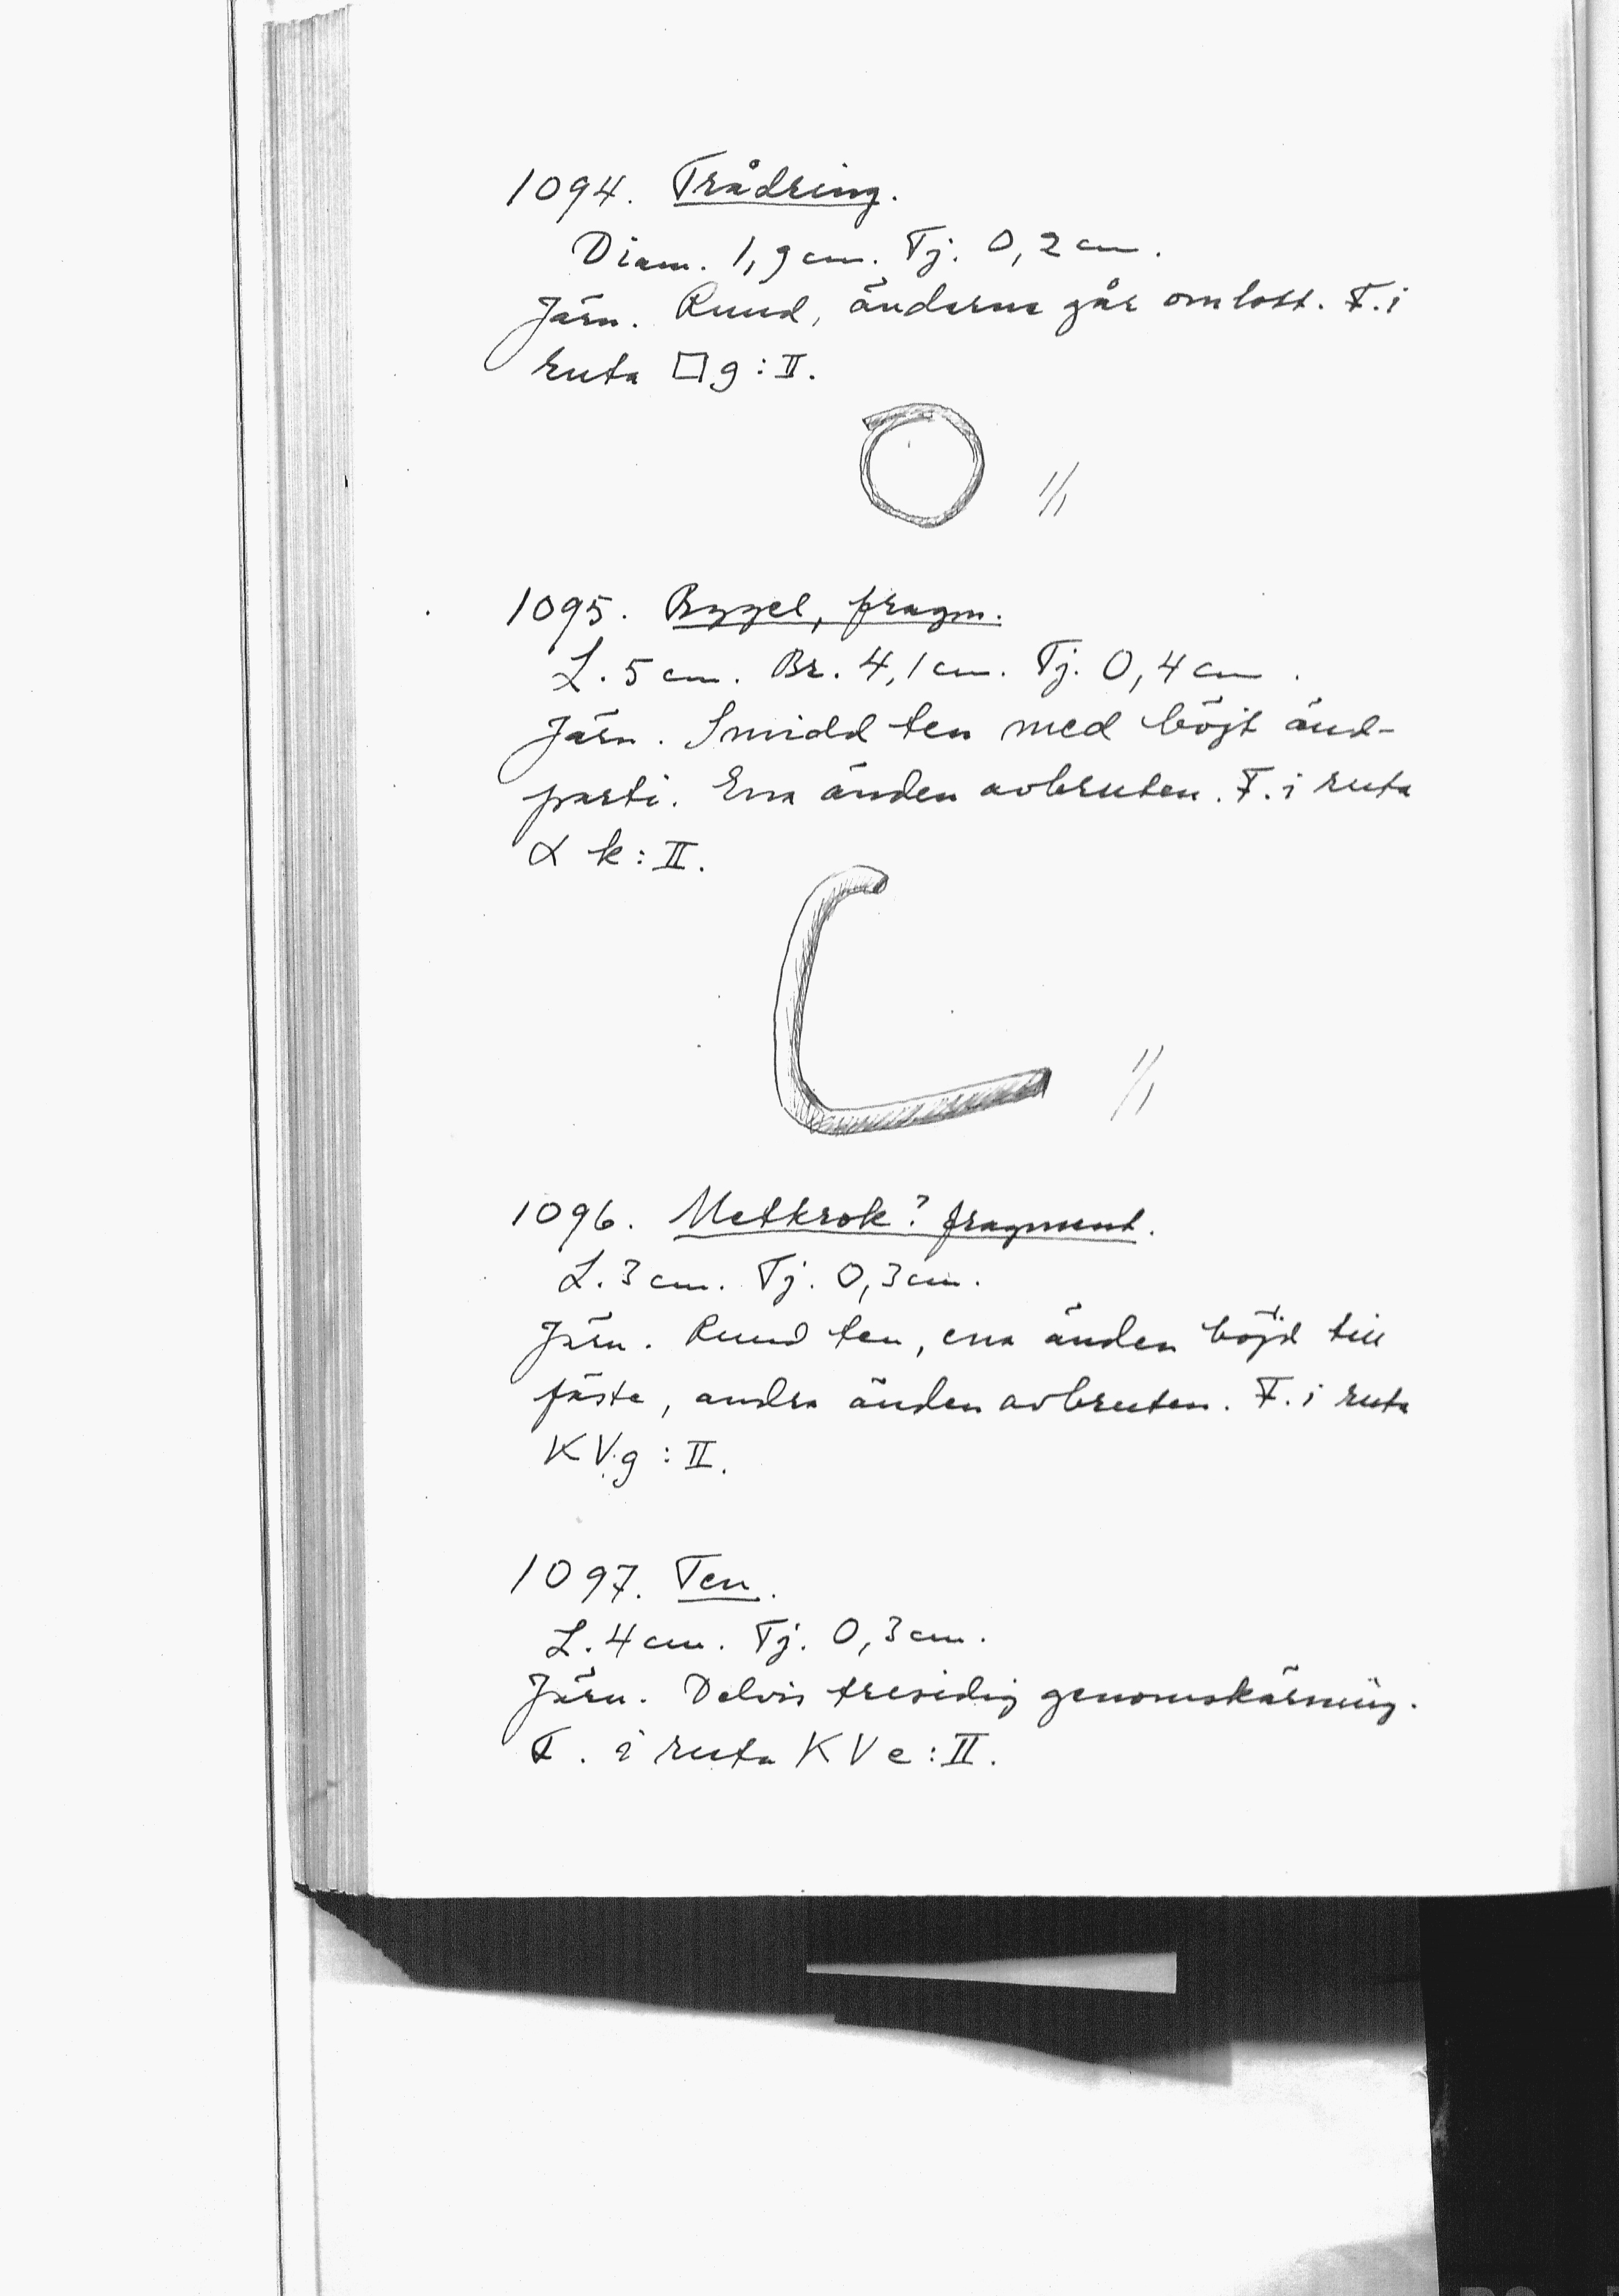 1094. Trådring.
Diam. 1,9 cm. Tj. 0,2 cm.
Järn. Rund, ändarna går omlott. F. i
ruta □ g : II.
1/1
1095. Bygel, fragm.
L. 5 cm. Br. 4,1 cm. Tj. 0,4 cm.
Järn. Smidd ten med böjt änd-
parti. Ena änden avbruten. F. i ruta
α k : II.
1/1
1096. Metkrok? fragment.
L. 3 cm. Tj. 0,3 cm.
Järn. Rund ten, ena änden böjd till
fäste, andra änden avbruten. F. i ruta
KV g : II.
1097. Ten.
L. 4 cm. Tj. 0,3 cm.
Järn. Delvis tresidig genomskärning.
F. i ruta KV e : II.